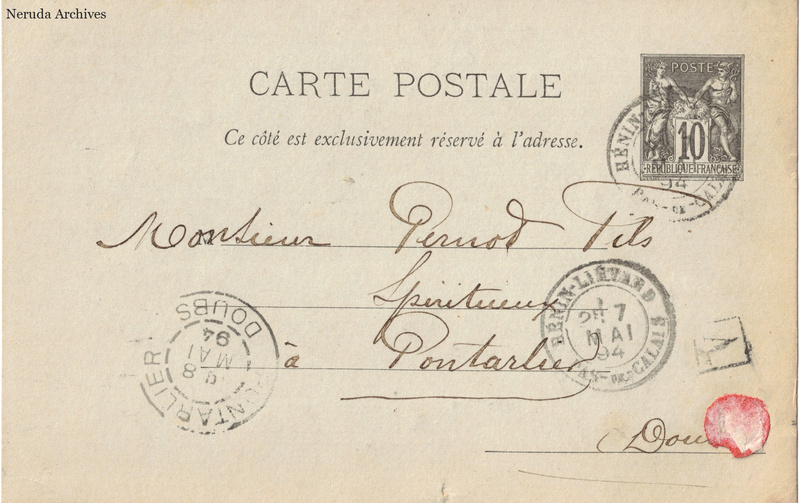 Neruda Archives
CARTE POSTALE
Ce côté est exclusivement réservé à l'adresse.
POSTE
10
RÉPUBLIQUE FRANÇAISE
HÉNIN-
94
PAS-DE-CALAIS
Monsieur Pernod Fils
Spiritueux
à Pontarlier
HÉNIN-LIÉTARD
7
MAI
94
PAS-DE-CALAIS
PONTARLIER
8
MAI
94
DOUBS
A